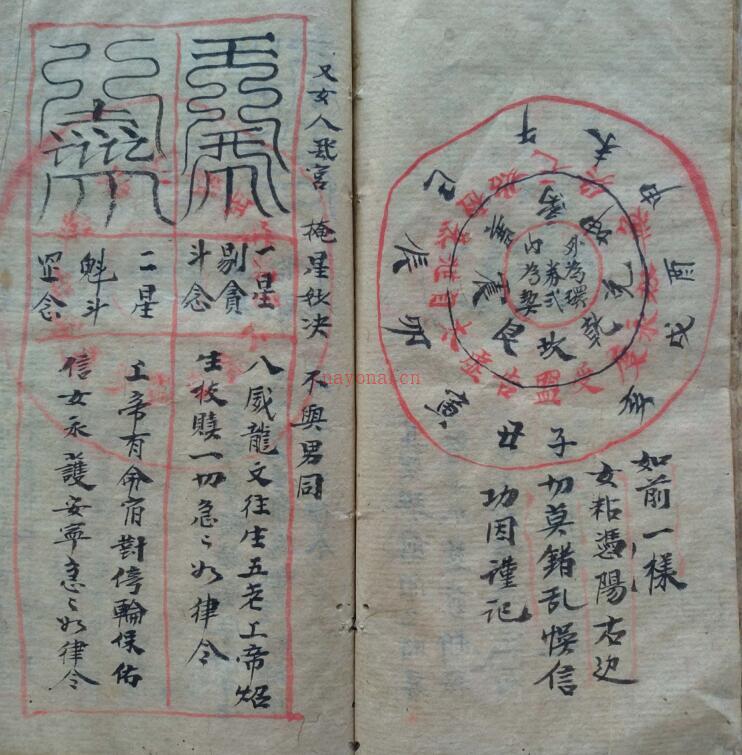 如前一樣
女粘憑陽右边
切莫錯乱悞信
功因謹記
外為環
券弍
内為契
离
坤
兑
乾
坎
艮
震
巽
午
未
申
酉
戌
亥
子
丑
寅
卯
辰
巳
盟
告
受
又女人 宮 掩星妙决 不與男同
一星
剔貪
斗念
八威龍文往生五老上帝炤
生枝賤一切急〻如律令
二星
魁斗
罡念
上帝有侖宿對停輪保佑
信女永護安寧急〻如律令
nayonal.cn